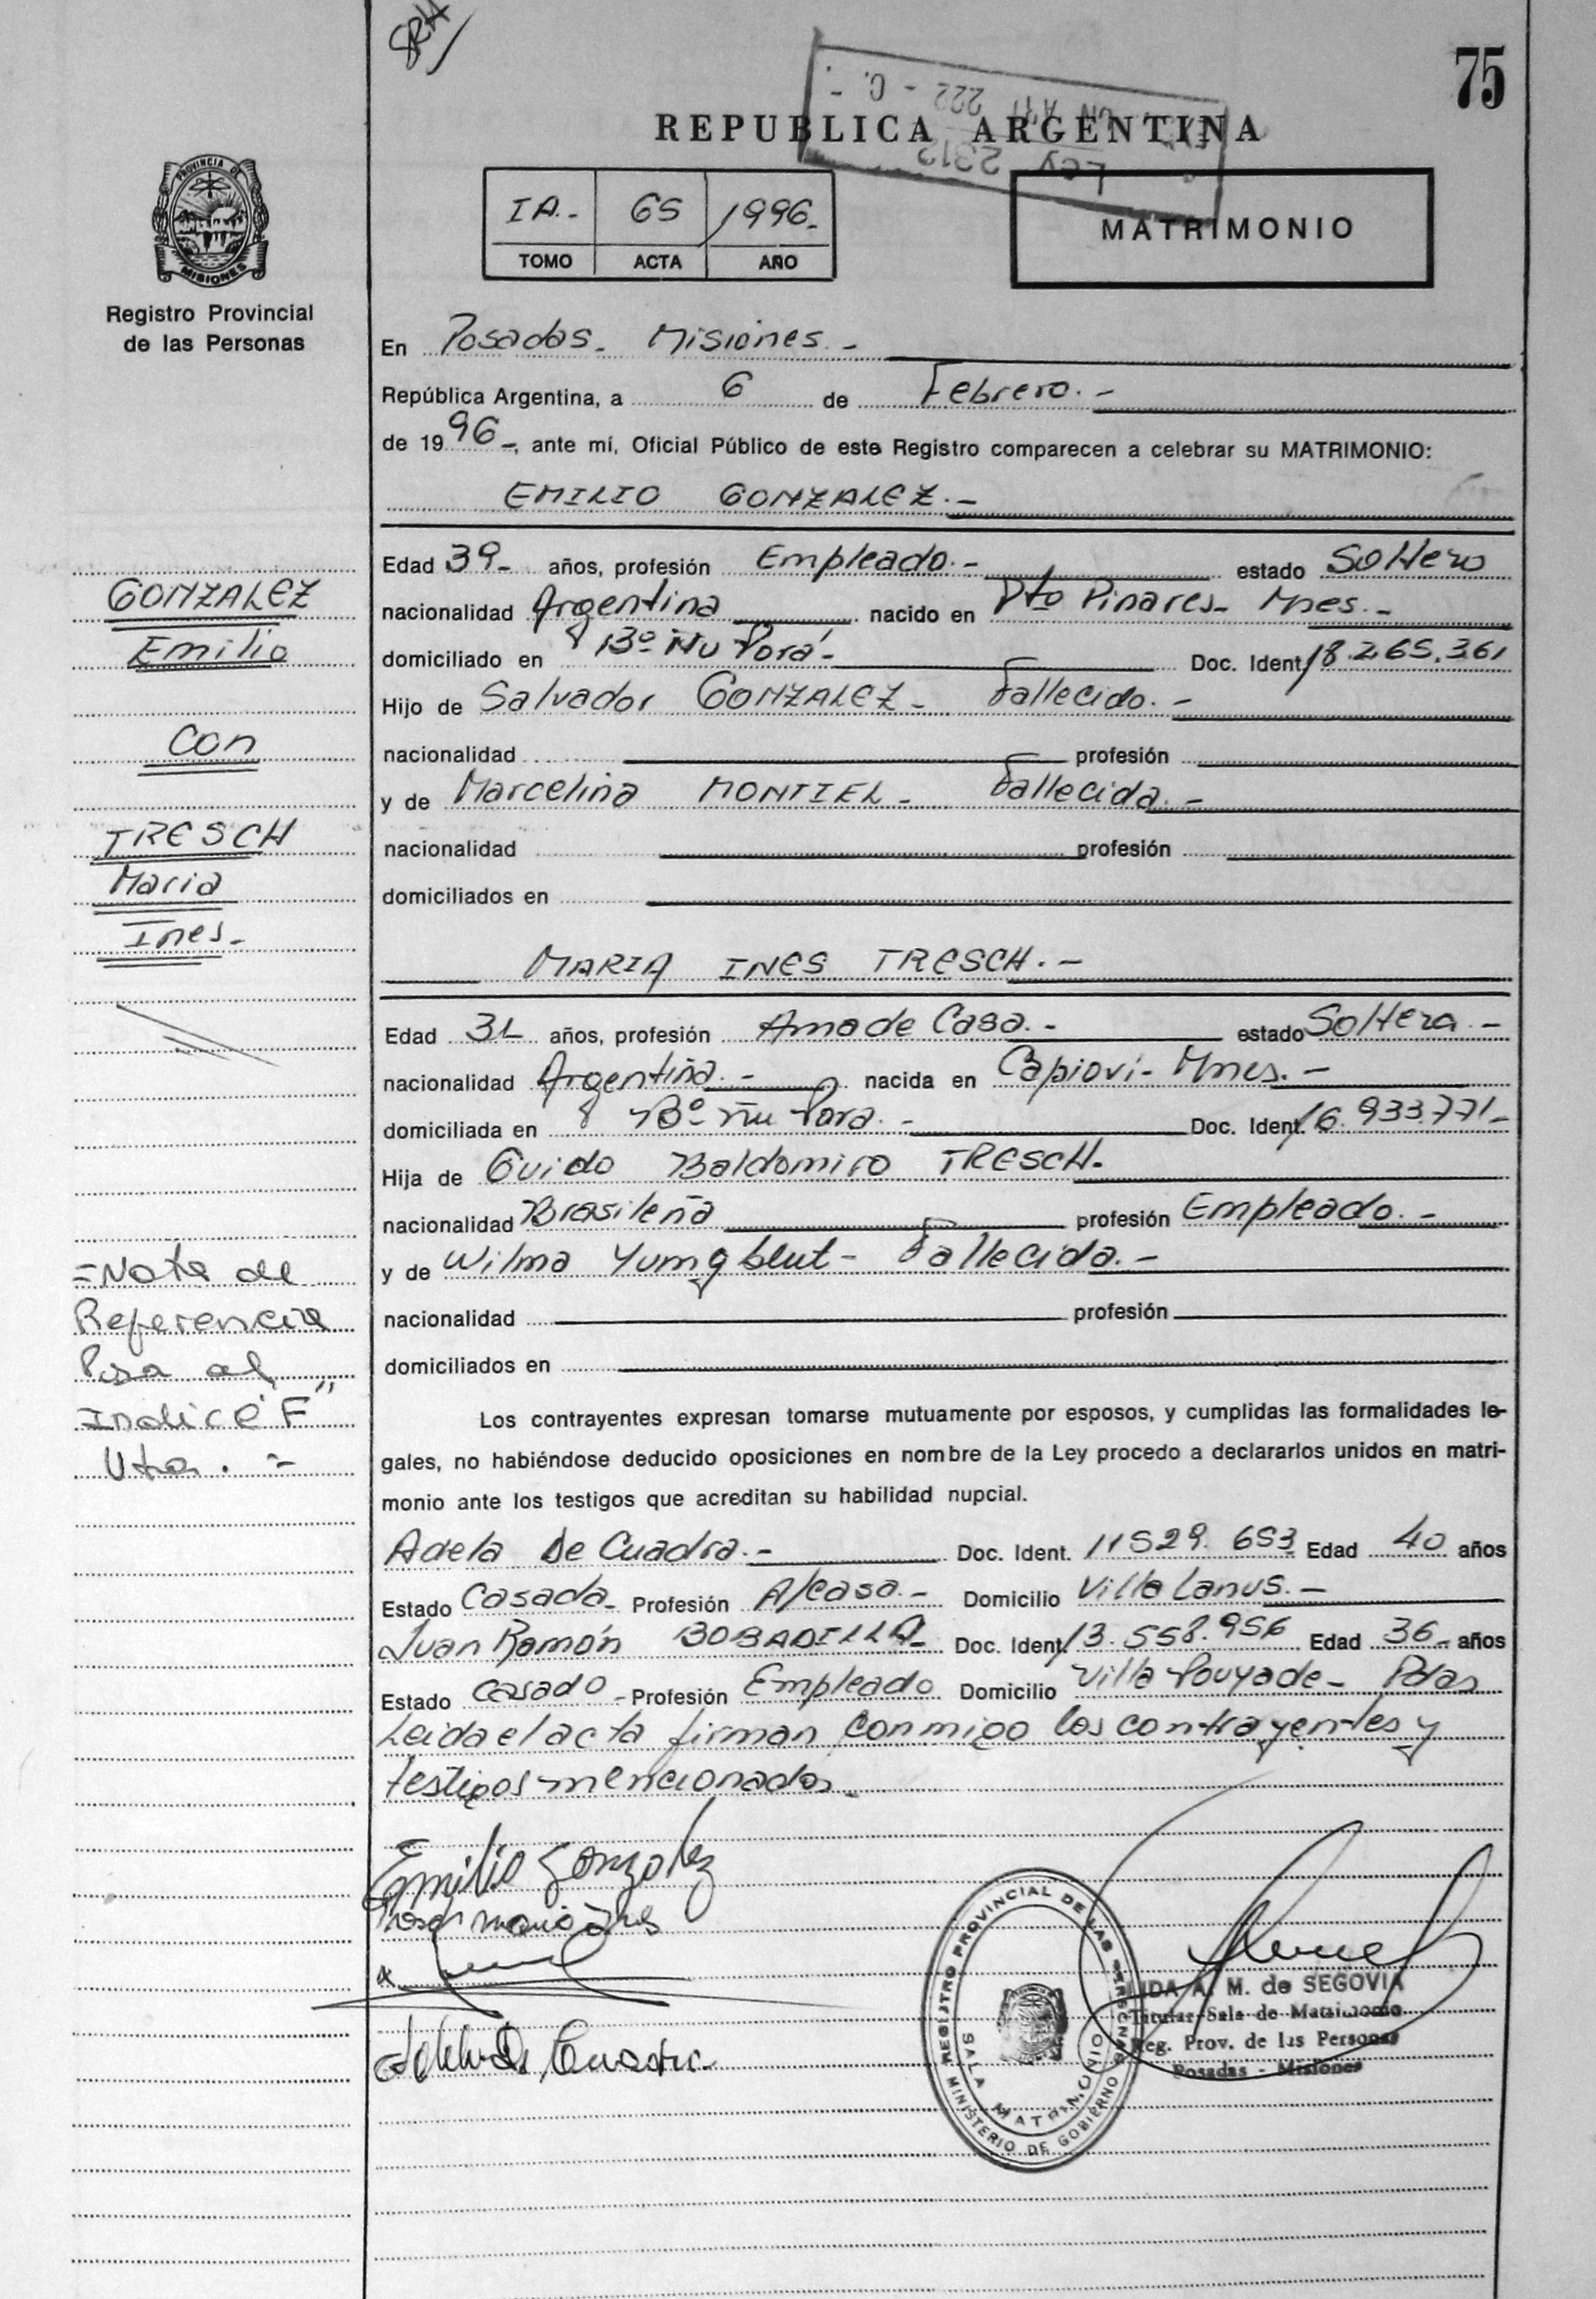 SRH
75
LEY 2312
UN ART 222 - C. -
REPUBLICA ARGENTINA
IA.- 65 1996.-
TOMO ACTA AÑO
MATRIMONIO
PROVINCIA DE
MISIONES
Registro Provincial
de las Personas
En Posadas - Misiones. -
República Argentina, a 6 de Febrero. -
de 1996 -, ante mí, Oficial Público de este Registro comparecen a celebrar su MATRIMONIO:
EMILIO GONZALEZ. -
Edad 39 - años, profesión Empleado. - estado Soltero
nacionalidad Argentina nacido en Pto Pinares - Mnes. -
domiciliado en Bº Ñu Porá - Doc. Ident. 18.265.361
Hijo de Salvador GONZALEZ - Fallecido. -
nacionalidad profesión
y de Marcelina MONTIEL - Fallecida. -
nacionalidad profesión
domiciliados en
MARIA INES TRESCH. -
Edad 31 años, profesión Ama de Casa. - estado Soltera. -
nacionalidad Argentina. - nacida en Capioví - Mnes. -
domiciliada en Bº Ñu Pora. - Doc. Ident. 16.933.771 -
Hija de Guido Baldomiro TRESCH.
nacionalidad Brasileña profesión Empleado. -
y de Wilma Yumgblut - Fallecida. -
nacionalidad profesión
domiciliados en
Los contrayentes expresan tomarse mutuamente por esposos, y cumplidas las formalidades le-
gales, no habiéndose deducido oposiciones en nombre de la Ley procedo a declararlos unidos en matri-
monio ante los testigos que acreditan su habilidad nupcial.
Adela De Cuadra. - Doc. Ident. 11529.653 Edad 40 años
Estado Casada - Profesión A/casa. - Domicilio Villa Lanus. -
Juan Ramón BOBADILLA - Doc. Ident. 13.558.956 Edad 36 - años
Estado casado - Profesión Empleado Domicilio Villa Pouyade - Pdas
Leida el acta firman conmigo los contrayentes y
testigos mencionados -
GONZALEZ
Emilio
Con
TRESCH
Maria
Ines -
= Nota de
Referencia
Pasa al
Indice "F"
Vta. =
Emilio Gonzalez
Tresch maria Ines
REGISTRO PROVINCIAL DE LAS PERSONAS
MINISTERIO DE GOBIERNO
SALA MATRIMONIO
LIDA A. M. de SEGOVIA
Titular Sala de Matrimonio
Reg. Prov. de las Personas
Posadas - Misiones